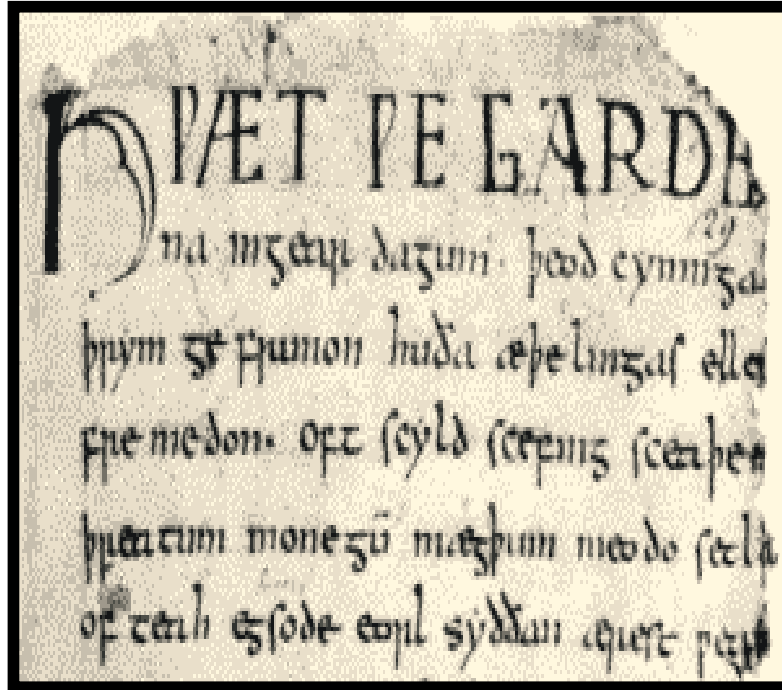 HǷÆT ǷE GARDE
na ingear dagum· þeod cyninga
þrym ge frunon huða æþelingaſ elle
fremedon· Oft ſcyld ſcefing ſceaþen
þreatum monegū mægþum meodo ſetla
of teah egſode eorl syððan æreſt ƿear